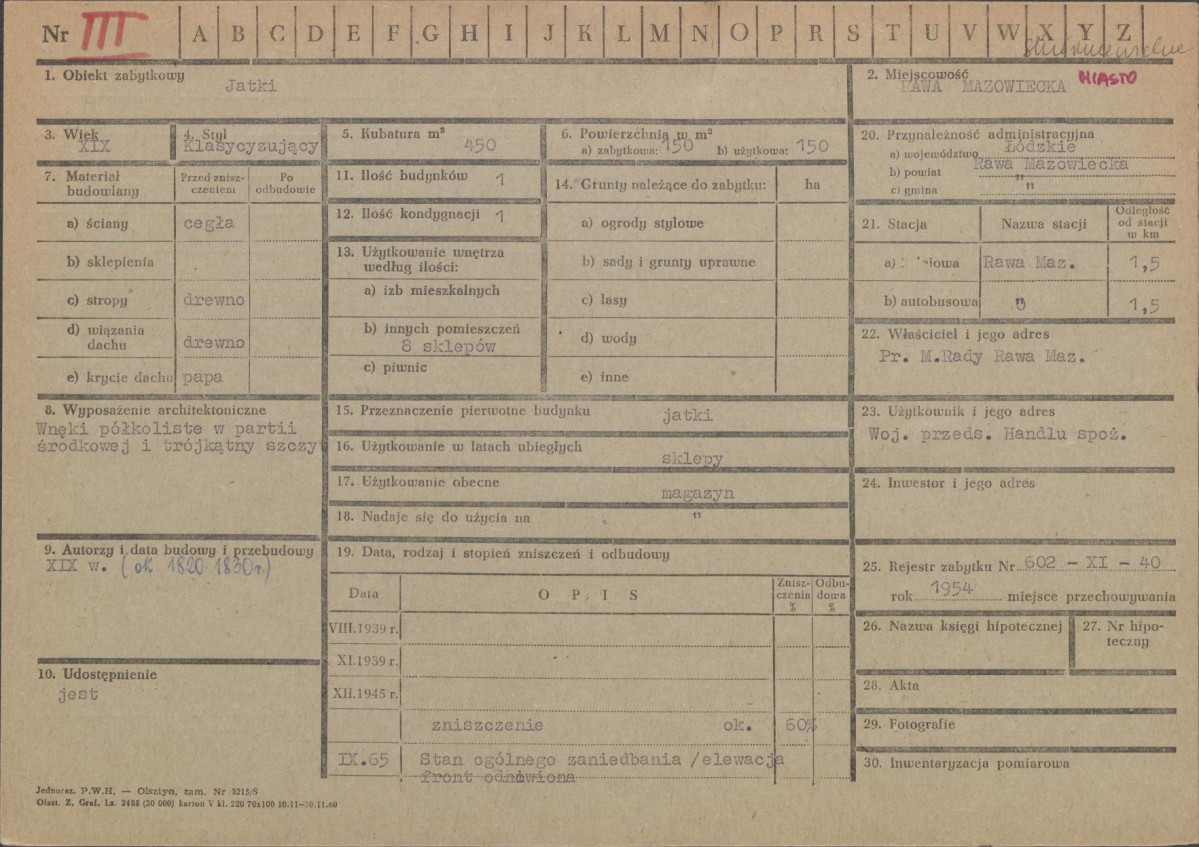 Nr III A B C D E F G H I J K L M N O P R S T U V W X Y Z
1. Obiekt zabytkowy
Jatki
2. Miejscowość
RAWA MAZOWIECKA MIASTO
3. Wiek
XIX
4. Styl
Klasycyzujący
5. Kubatura m³
450
6. Powierzchnia w m²
a) zabytkowa: 150 b) użytkowa: 150
20. Przynależność administracyjna
a) województwo Łódzkie
b) powiat Rawa Mazowiecka
c) gmina "
7. Materiał budowlany
Przed zniszczeniem
Po odbudowie
a) ściany cegła
b) sklepienia
c) stropy drewno
d) wiązania dachu drewno
e) krycie dachu papa
11. Ilość budynków 1
12. Ilość kondygnacji 1
13. Użytkowanie wnętrza
według ilości:
a) izb mieszkalnych
b) innych pomieszczeń
8 sklepów
c) piwnic
14. Grunty należące do zabytku: ha
a) ogrody stylowe
b) sady i grunty uprawne
c) lasy
d) wody
e) inne
21. Stacja Nazwa stacji Odległość od stacji w km
a) Rawa Maz. 1,5
b) autobusowa " 1,5
22. Właściciel i jego adres
Pr. M.Rady Rawa Maz.
8. Wyposażenie architektoniczne
Wnęki półkoliste w partii
środkowej i trójkątny szczyt
15. Przeznaczenie pierwotne budynku jatki
16. Użytkowanie w latach ubiegłych
sklepy
17. Użytkowanie obecne
magazyn
18. Nadaje się do użycia na "
23. Użytkownik i jego adres
Woj. przeds. Handlu spoż.
24. Inwestor i jego adres
9. Autorzy i data budowy i przebudowy
XIX w. (ok 1820-1830r.)
10. Udostępnienie
jest
19. Data, rodzaj i stopień zniszczeń i odbudowy
Data OPIS Zniszczenia % Odbudowa %
VIII.1939 r.
XI.1939 r.
XII.1945 r.
zniszczenie ok. 60%
IX.65 Stan ogólnego zaniedbania /elewacja
front odnowiona
25. Rejestr zabytku Nr 602 - XI - 40
rok 1954 miejsce przechowywania
26. Nazwa księgi hipotecznej
27. Nr hipoteczny
28. Akta
29. Fotografie
30. Inwentaryzacja pomiarowa
Jednoraz. P.W.H. — Olsztyn, zam. Nr 3215/S
Olszt. Z. Graf. Lz. 2455 (20 000) karton V kl. 220 70x100 10.11—30.11.60